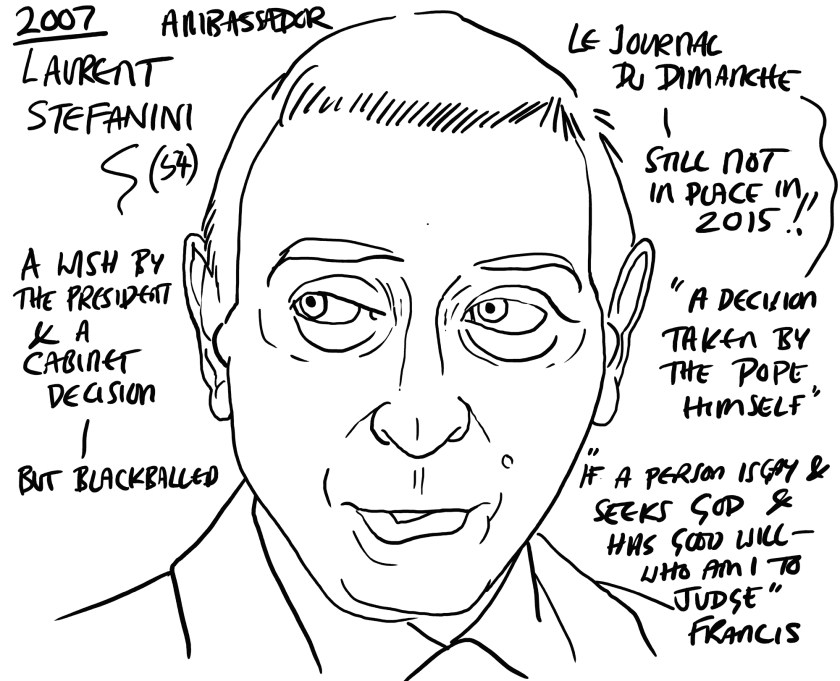 2007 AMBASSADOR
LAURENT
STEFANINI
(54)
A WISH BY
THE PRESIDENT
& A
CABINET
DECISION
BUT BLACKBALLED
LE JOURNAL
DU DIMANCHE
STILL NOT
IN PLACE IN
2015!!
"A DECISION
TAKEN BY
THE POPE
HIMSELF"
"IF A PERSON IS GAY &
SEEKS GOD &
HAS GOOD WILL—
WHO AM I TO
JUDGE"
FRANCIS